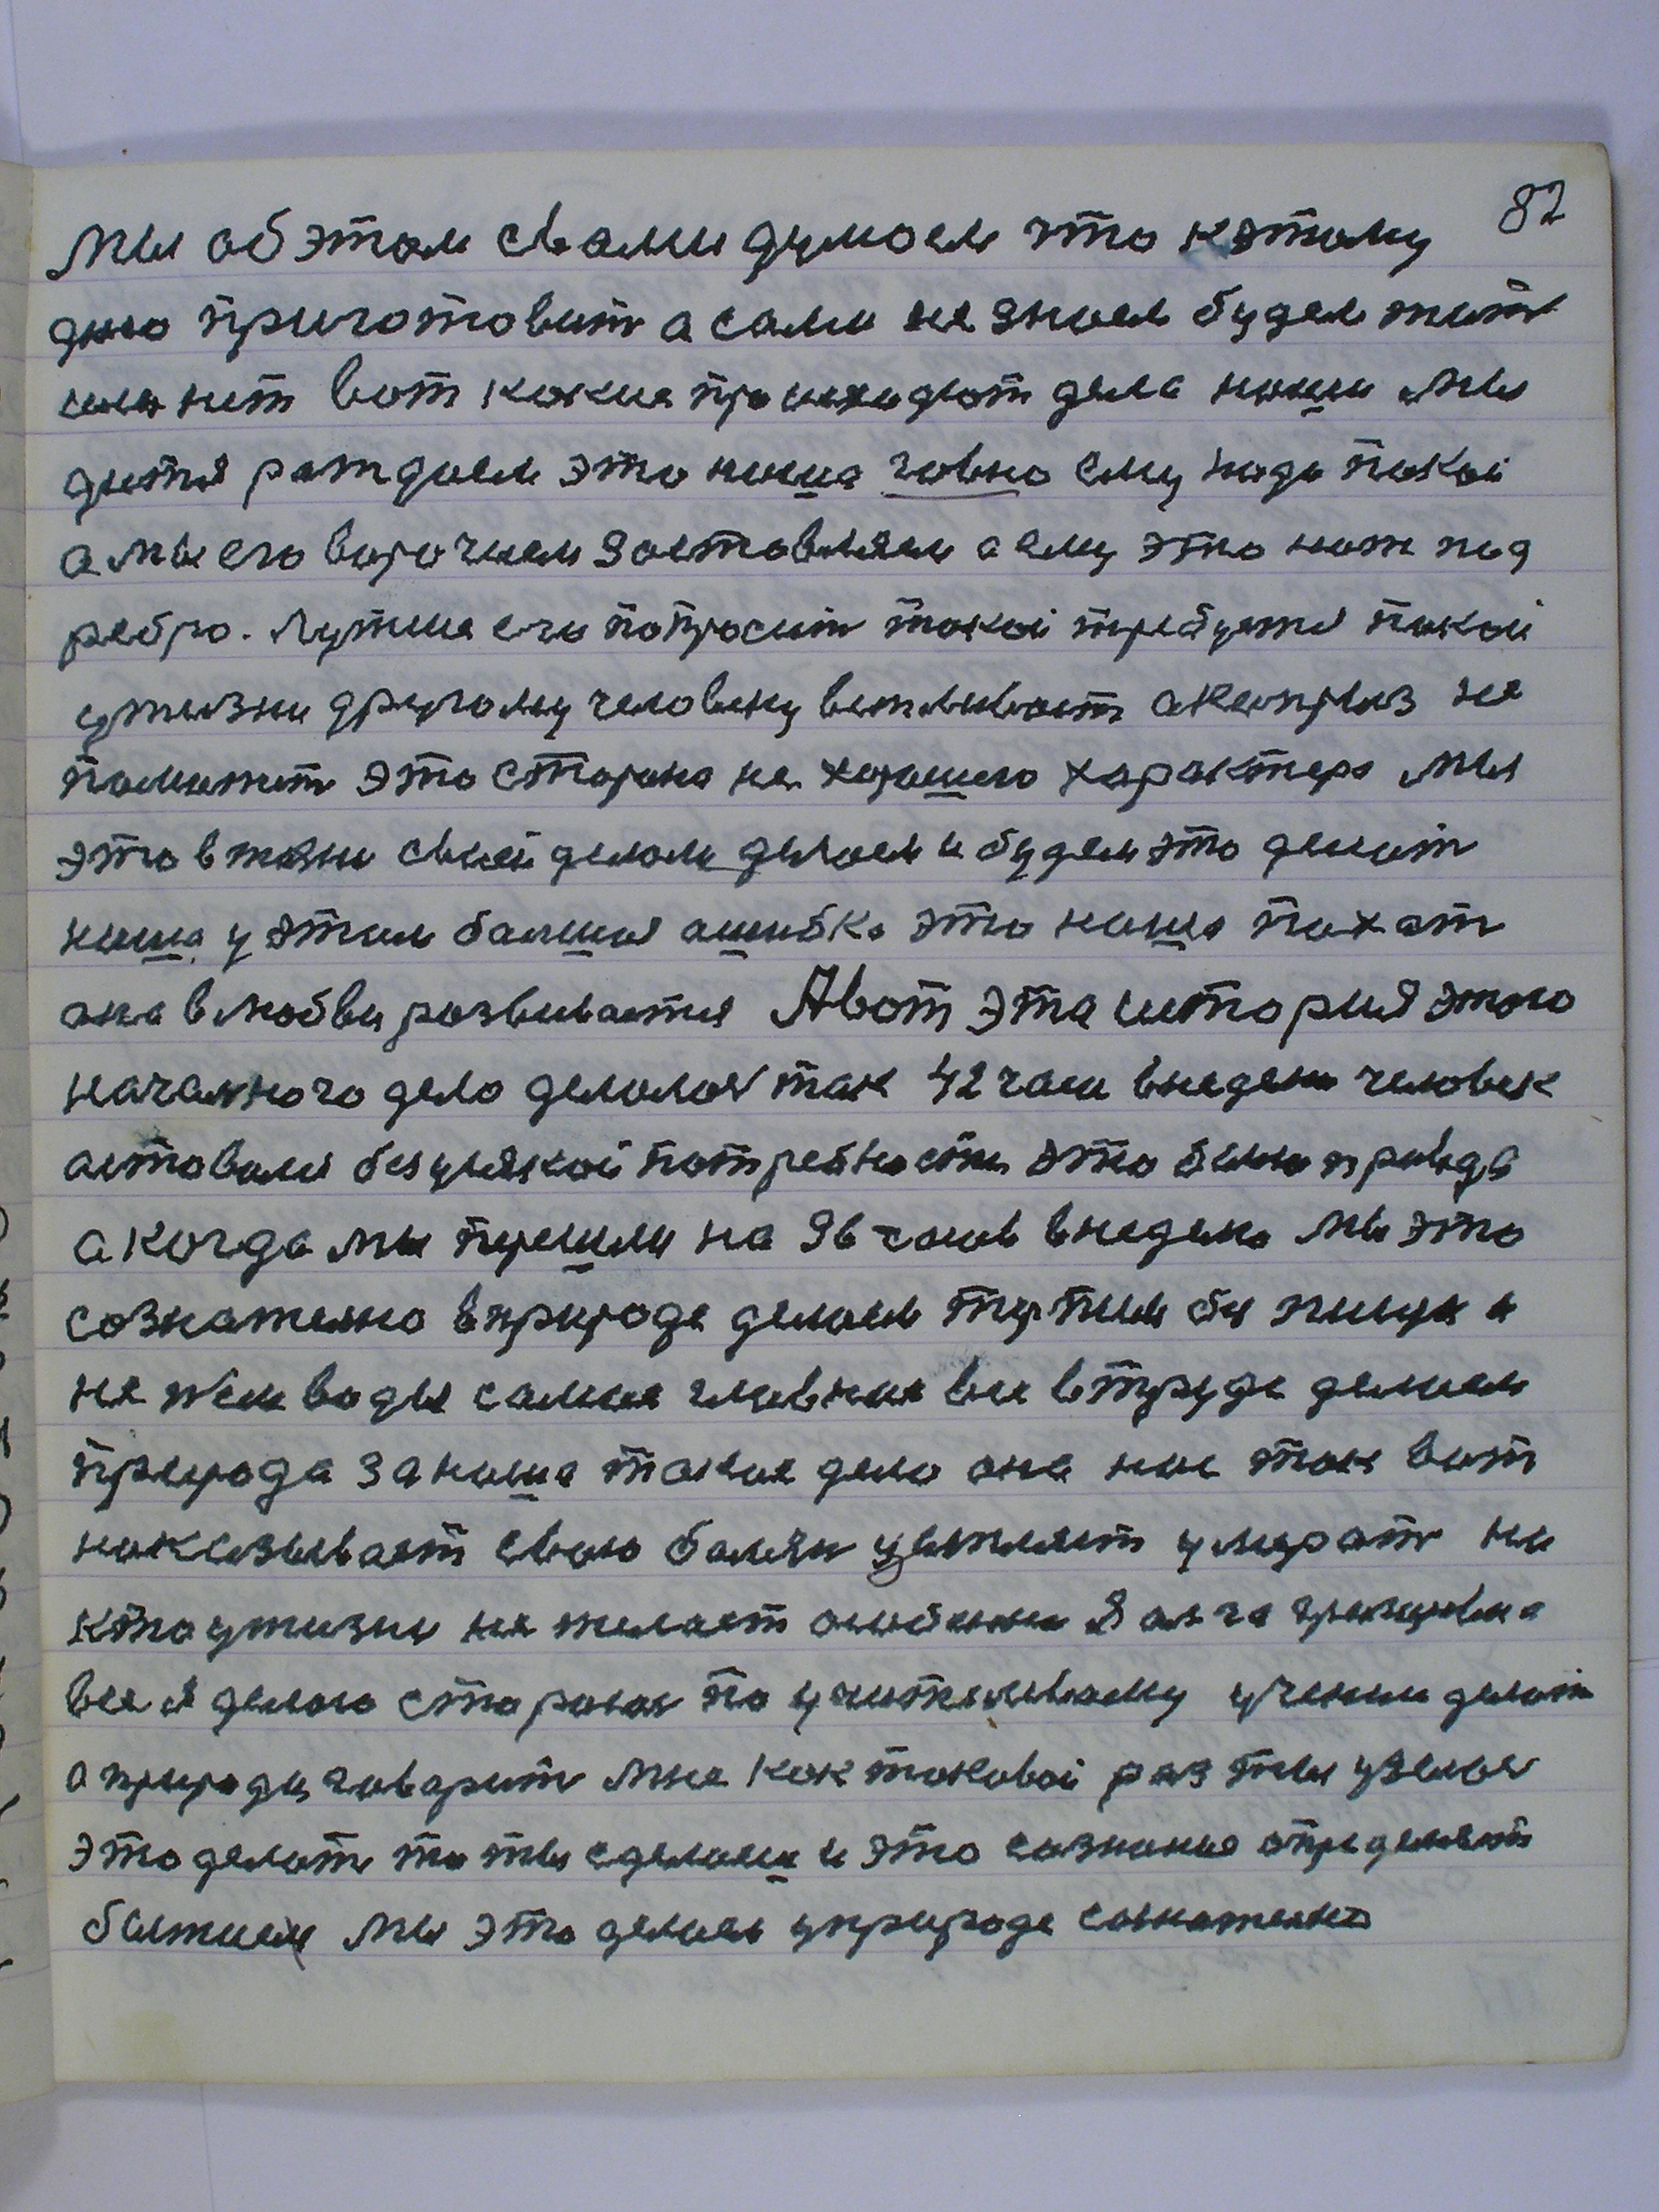 82
Мы об этом свами думоем что кэтому
дню приготовит а сами не знаем будем жит
или нит вот кокие происходют дела наши мы
дитя раждоем это наша говно ему нада покой
а мы его ворочием заставляем а ему это нож под
ребро. Лутше его попросит токой требуется покой
ужизни другому человеку
поможит это сторона не хорошего характера мы
это вжизни своей делом делоем и будем это делит
наша у этом балшая ашибка это наша похат
она влюбви развивается Авот эта история этого
началного дело делолос так 42 часа внеделю человек
аставался безуякой потребности это было правда
а когда мы пришли на 96 часов внеделю мы это
сознателно вприроде делаем терпим без пищи и
не пём воды самае главное все втруде делаем
природа за наша такое дело она нас так вот
наказывает свою болячку умират ни
кто ужизни не желает особенно
все я делою стороюс по учителскому учении делат
а природа говорит мне как токовой раз ты узялся
это делат то ты сделаеш и это сознание определяит
бытием мы это делаем уприроде сознателно